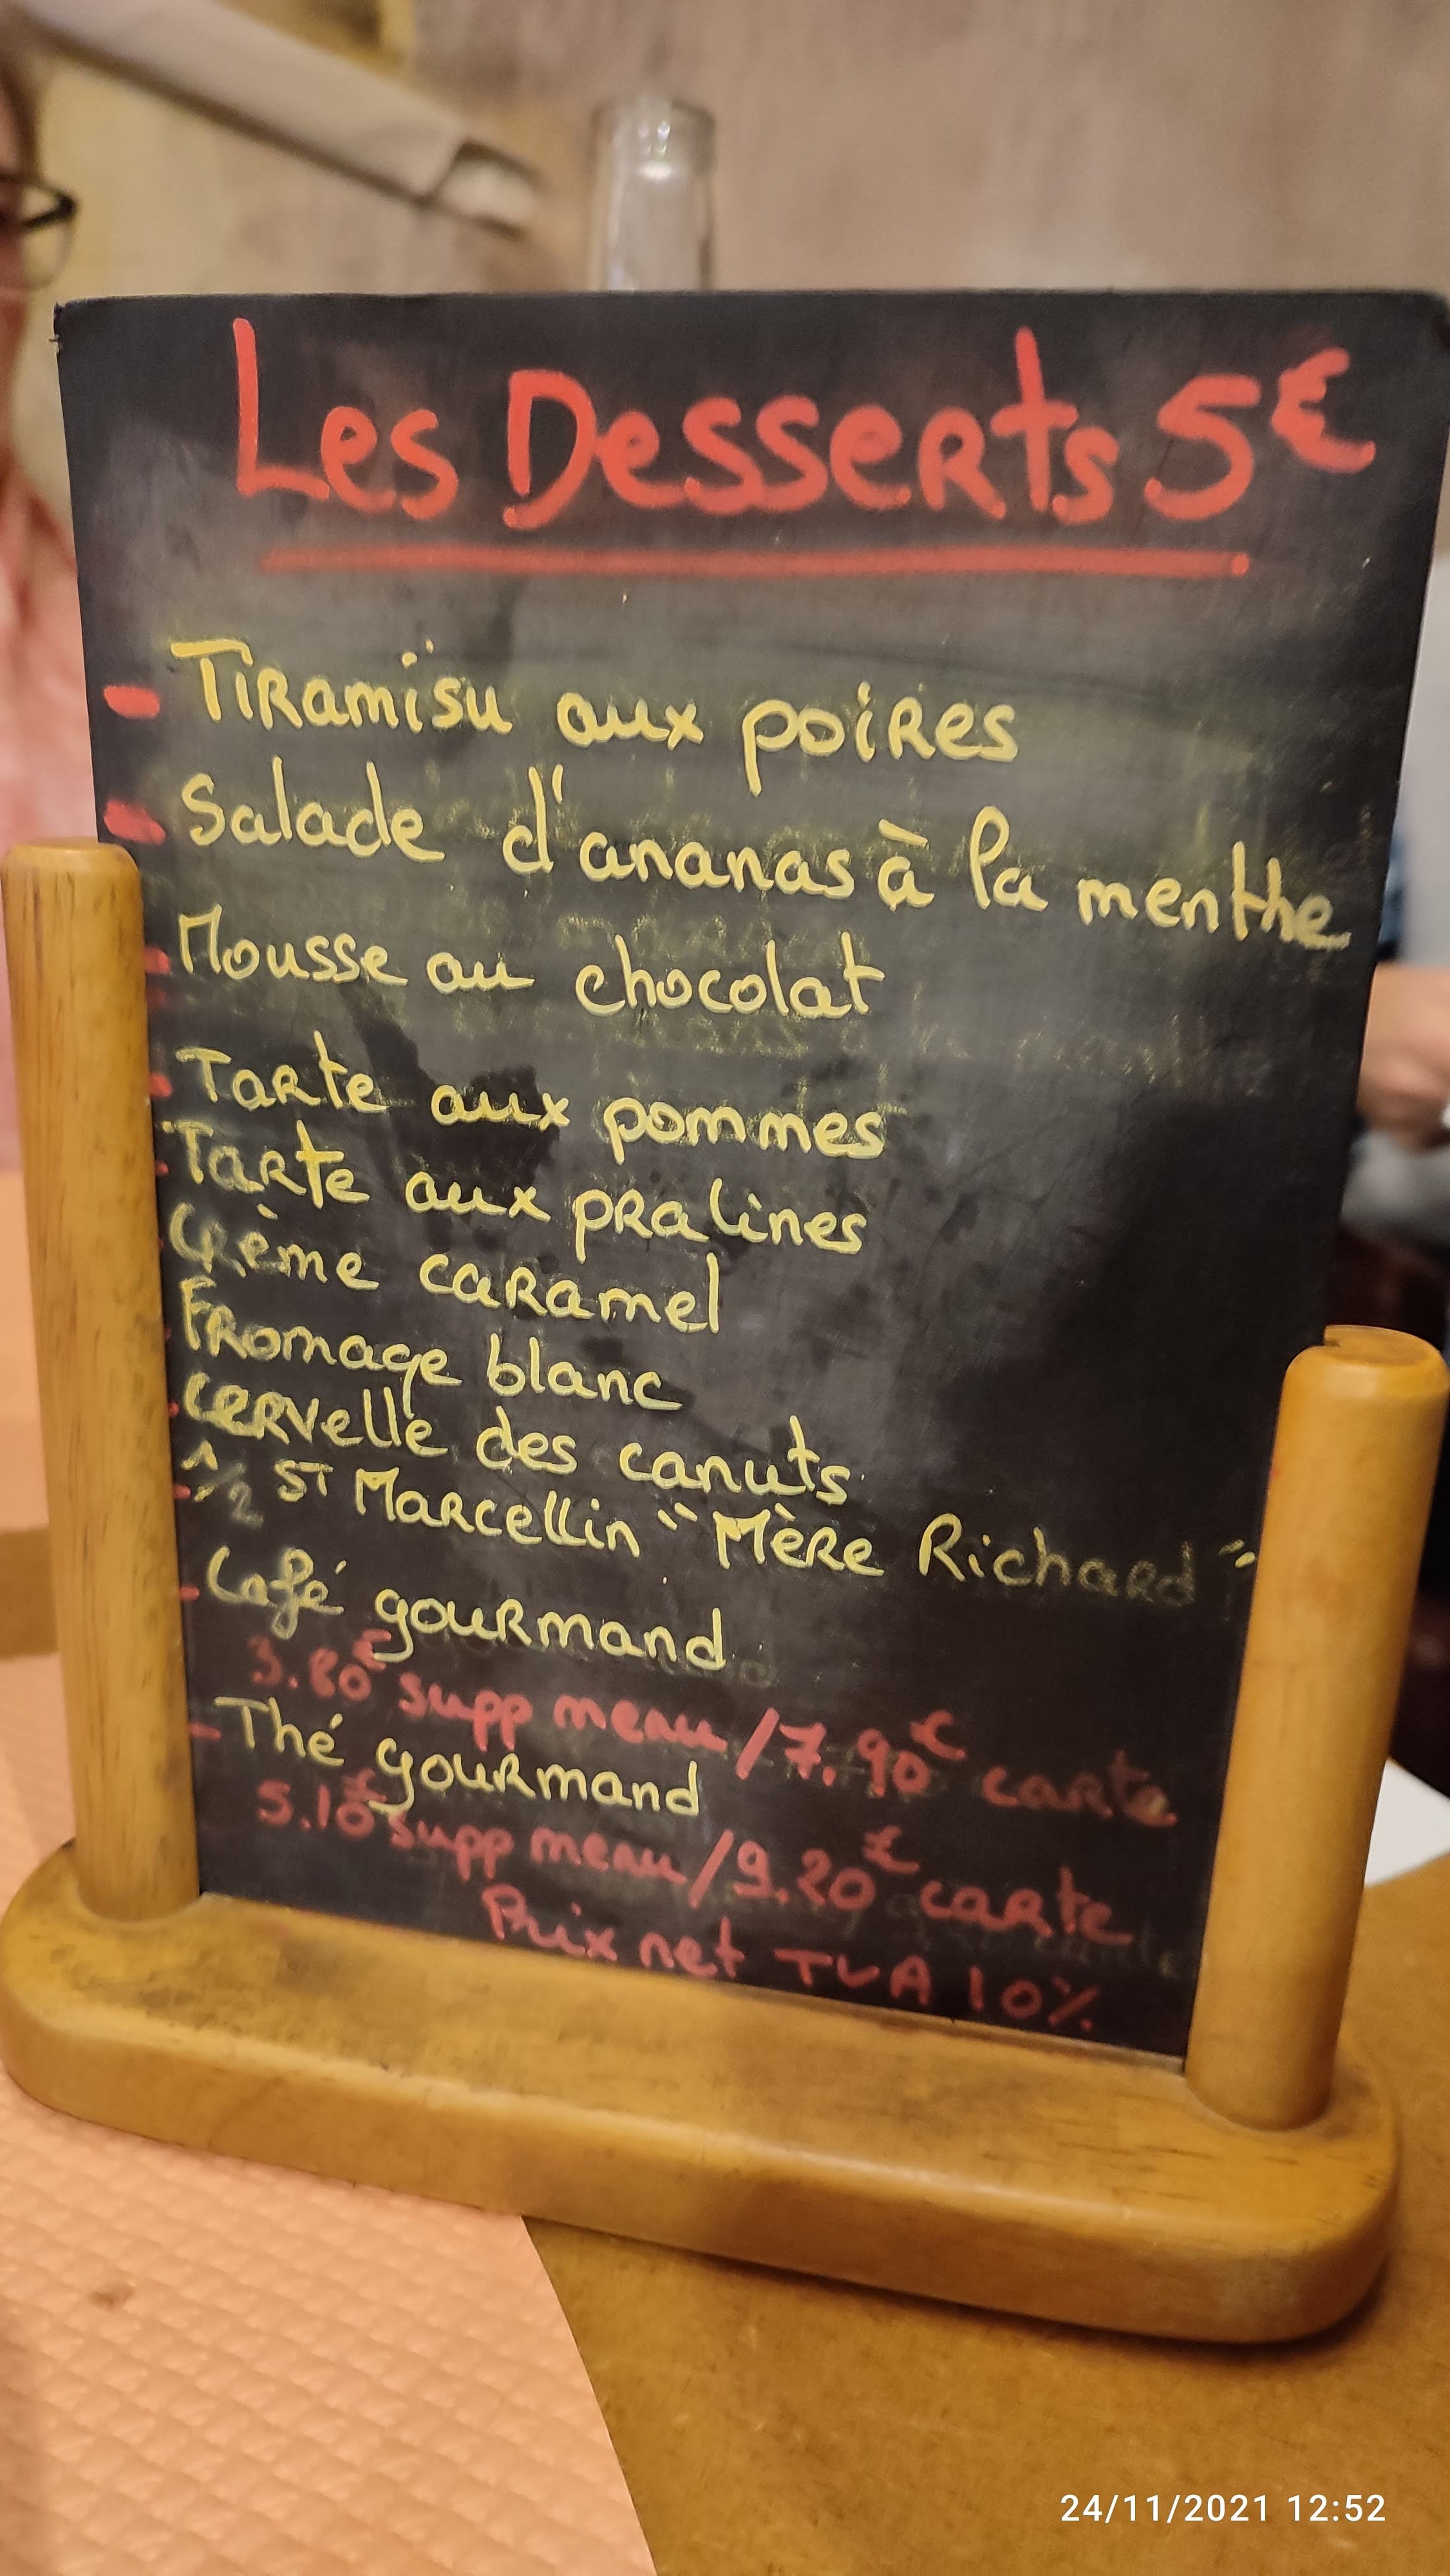 Les Desserts 5€
- Tiramïsu aux poires
- Salade d'ananas à la menthe
- Mousse au chocolat
- Tarte aux pommes
- Tarte aux pralines
Crème caramel
Fromage blanc
- Cervelle des canuts
- 1/2 ST Marcellin "Mère Richard"
- Café gourmand
3.80€ supp menu/7.90€ carte
- Thé gourmand
5.10€ supp menu/9.20€ carte
Prix net TVA 10%
24/11/2021 12:52